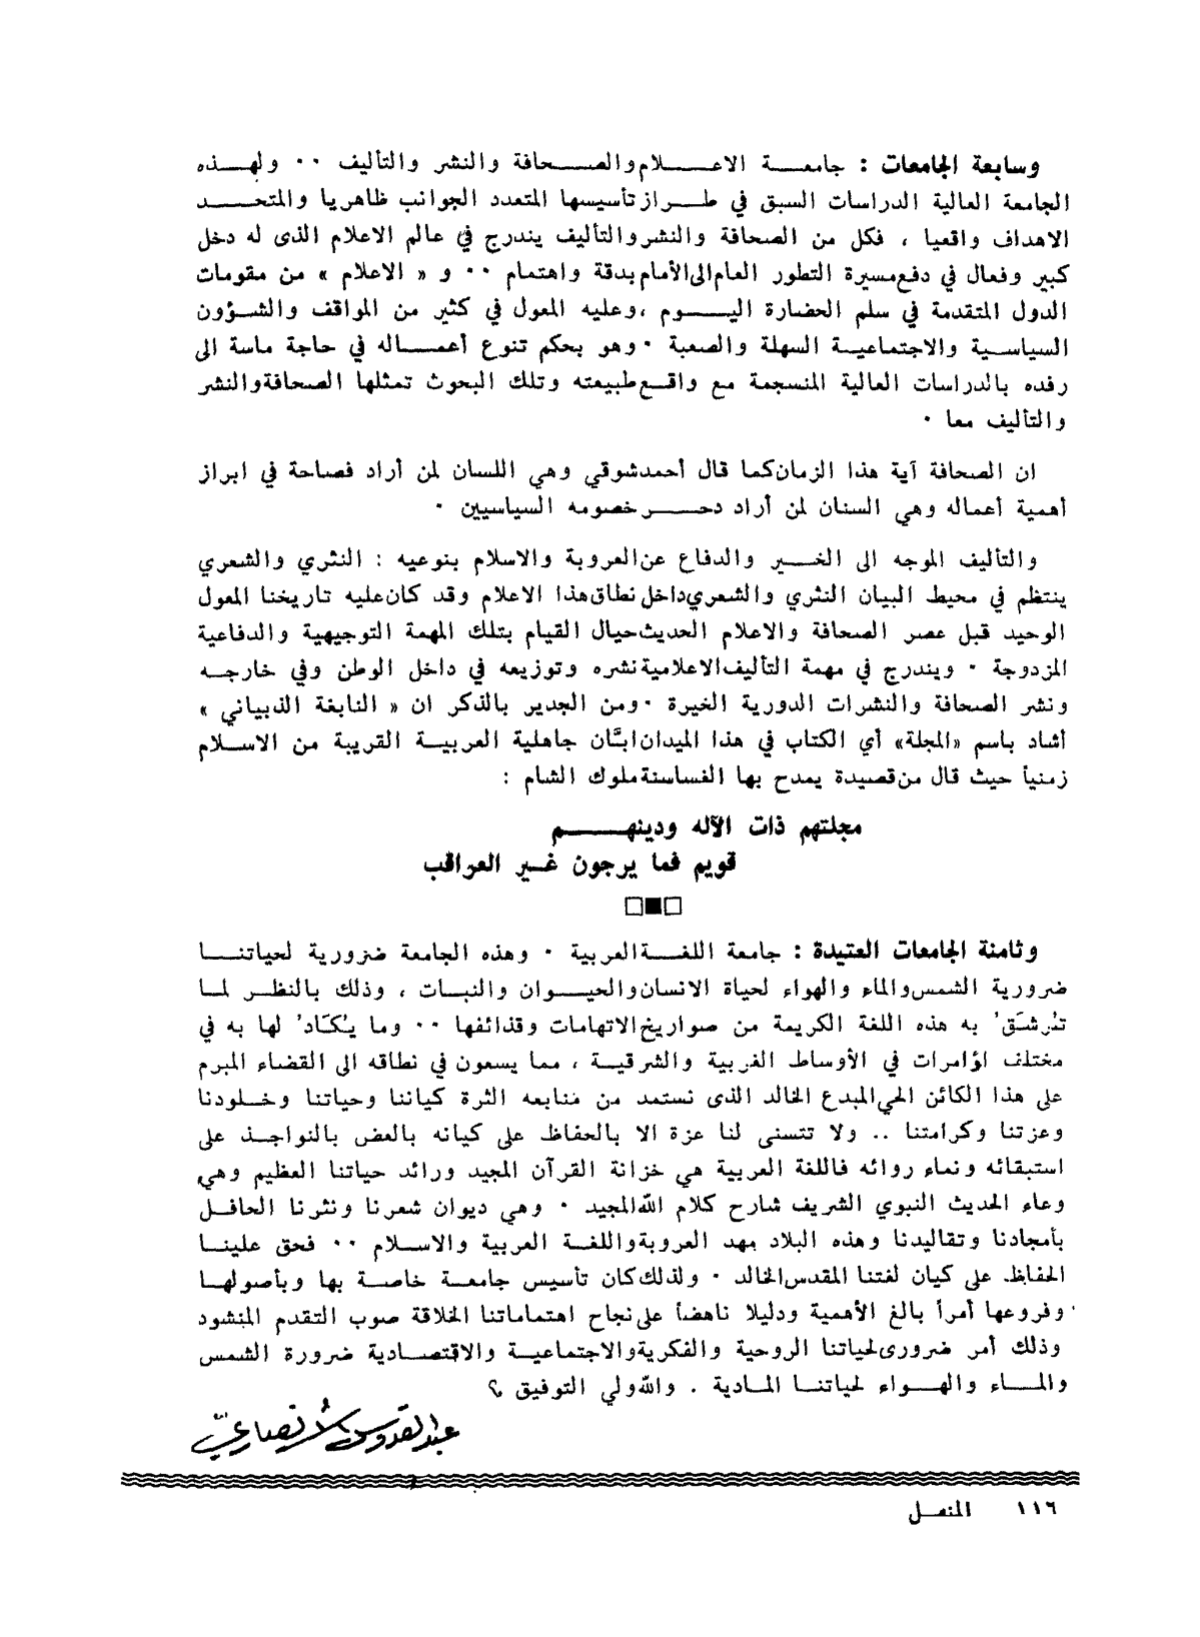 وسابعة الجامعات : جامعة الاعلام والصحافة والنشر والتأليف ۰۰ ولهذه
الجامعة العالية الدراسات السبق في طراز تأسيسها المتعدد الجوانب ظاهريا والمتحد
الاهداف واقعيا ، فكل من الصحافة والنشر والتأليف يندرج في عالم الاعلام الذى له دخل
كبير وفعال في دفع مسيرة التطور العام الى الأمام بدقة واهتمام ۰۰ و « الاعلام » من مقومات
الدول المتقدمة في سلم الحضارة اليوم ، وعليه المعول في كثير من المواقف والشؤون
السياسية والاجتماعية السهلة والصعبة ۰ وهو بحكم تنوع أعماله في حاجة ماسة الى
رفده بالدراسات العالية المنسجمة مع واقع طبيعته وتلك البحوث تمثلها الصحافة والنشر
والتأليف معا ۰
ان الصحافة آية هذا الزمان كما قال أحمد شوقي وهي اللسان لمن أراد فصاحة في ابراز
أهمية أعماله وهي السنان لمن أراد دحر خصومه السياسيين ۰
والتأليف الموجه الى الخير والدفاع عن العروبة والاسلام بنوعيه : النثري والشعري
ينتظم في محيط البيان النثري والشعري داخل نطاق هذا الاعلام وقد كان عليه تاريخنا المعول
الوحيد قبل عصر الصحافة والاعلام الحديث حيال القيام بتلك المهمة التوجيهية والدفاعية
المزدوجة ۰ ويندرج في مهمة التأليف الاعلامية نشره وتوزيعه في داخل الوطن وفي خارجه
ونشر الصحافة والنشرات الدورية الخيرة ۰ ومن الجدير بالذكر ان « النابغة الذبياني »
أشاد باسم «المجلة» أي الكتاب في هذا الميدان ابّان جاهلية العربية القريبة من الاسلام
زمنياً حيث قال من قصيدة يمدح بها الغساسنة ملوك الشام :
مجلتهم ذات الآله ودينهم
قويم فما يرجون غير العواقب
وثامنة الجامعات العتيدة : جامعة اللغة العربية ۰ وهذه الجامعة ضرورية لحياتنا
ضرورية الشمس والماء والهواء لحياة الانسان والحيوان والنبات ، وذلك بالنظر لما
تُرشَقُ به هذه اللغة الكريمة من صواريخ الاتهامات وقذائفها ۰۰ وما يُكَادُ لها به في
مختلف المؤامرات في الأوساط الغربية والشرقية ، مما يسعون في نطاقه الى القضاء المبرم
على هذا الكائن الحي المبدع الخالد الذى نستمد من منابعه الثرة كياننا وحياتنا وخلودنا
وعزتنا وكرامتنا .. ولا تتسنى لنا عزة الا بالحفاظ على كيانه بالعض بالنواجذ على
استبقائه ونماء روائه فاللغة العربية هي خزانة القرآن المجيد ورائد حياتنا العظيم وهي
وعاء الحديث النبوي الشريف شارح كلام الله المجيد ۰ وهي ديوان شعرنا ونثرنا الحافل
بأمجادنا وتقاليدنا وهذه البلاد مهد العروبة واللغة العربية والاسلام ۰۰ فحق علينا
الحفاظ على كيان لغتنا المقدس الخالد ۰ ولذلك كان تأسيس جامعة خاصة بها وبأصولها
وفروعها أمراً بالغ الأهمية ودليلا ناهضاً على نجاح اهتماماتنا الخلاقة صوب التقدم المنشود
وذلك أمر ضرورى لحياتنا الروحية والفكرية والاجتماعية والاقتصادية ضرورة الشمس
والماء والهواء لحياتنا المادية . والله ولي التوفيق ؟
عبد القدوس الأنصاري
١١٦ المنهل